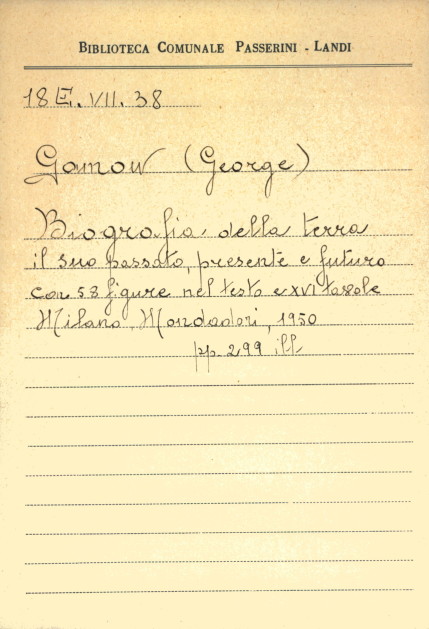 BIBLIOTECA COMUNALE PASSERINI - LANDI
18 E. VII. 38
Gamow (George)
Biografia della terra
il suo passato, presente e futuro
con 58 figure nel testo e XVI tavole
Milano, Mondadori, 1950
pp. 299 ill